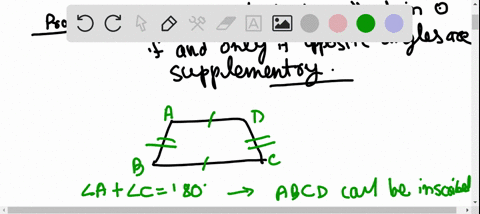 in O
if and only if opposite angles are
supplementry.
A D
B C
∠A + ∠C = 180° → ABCD can be inscribed